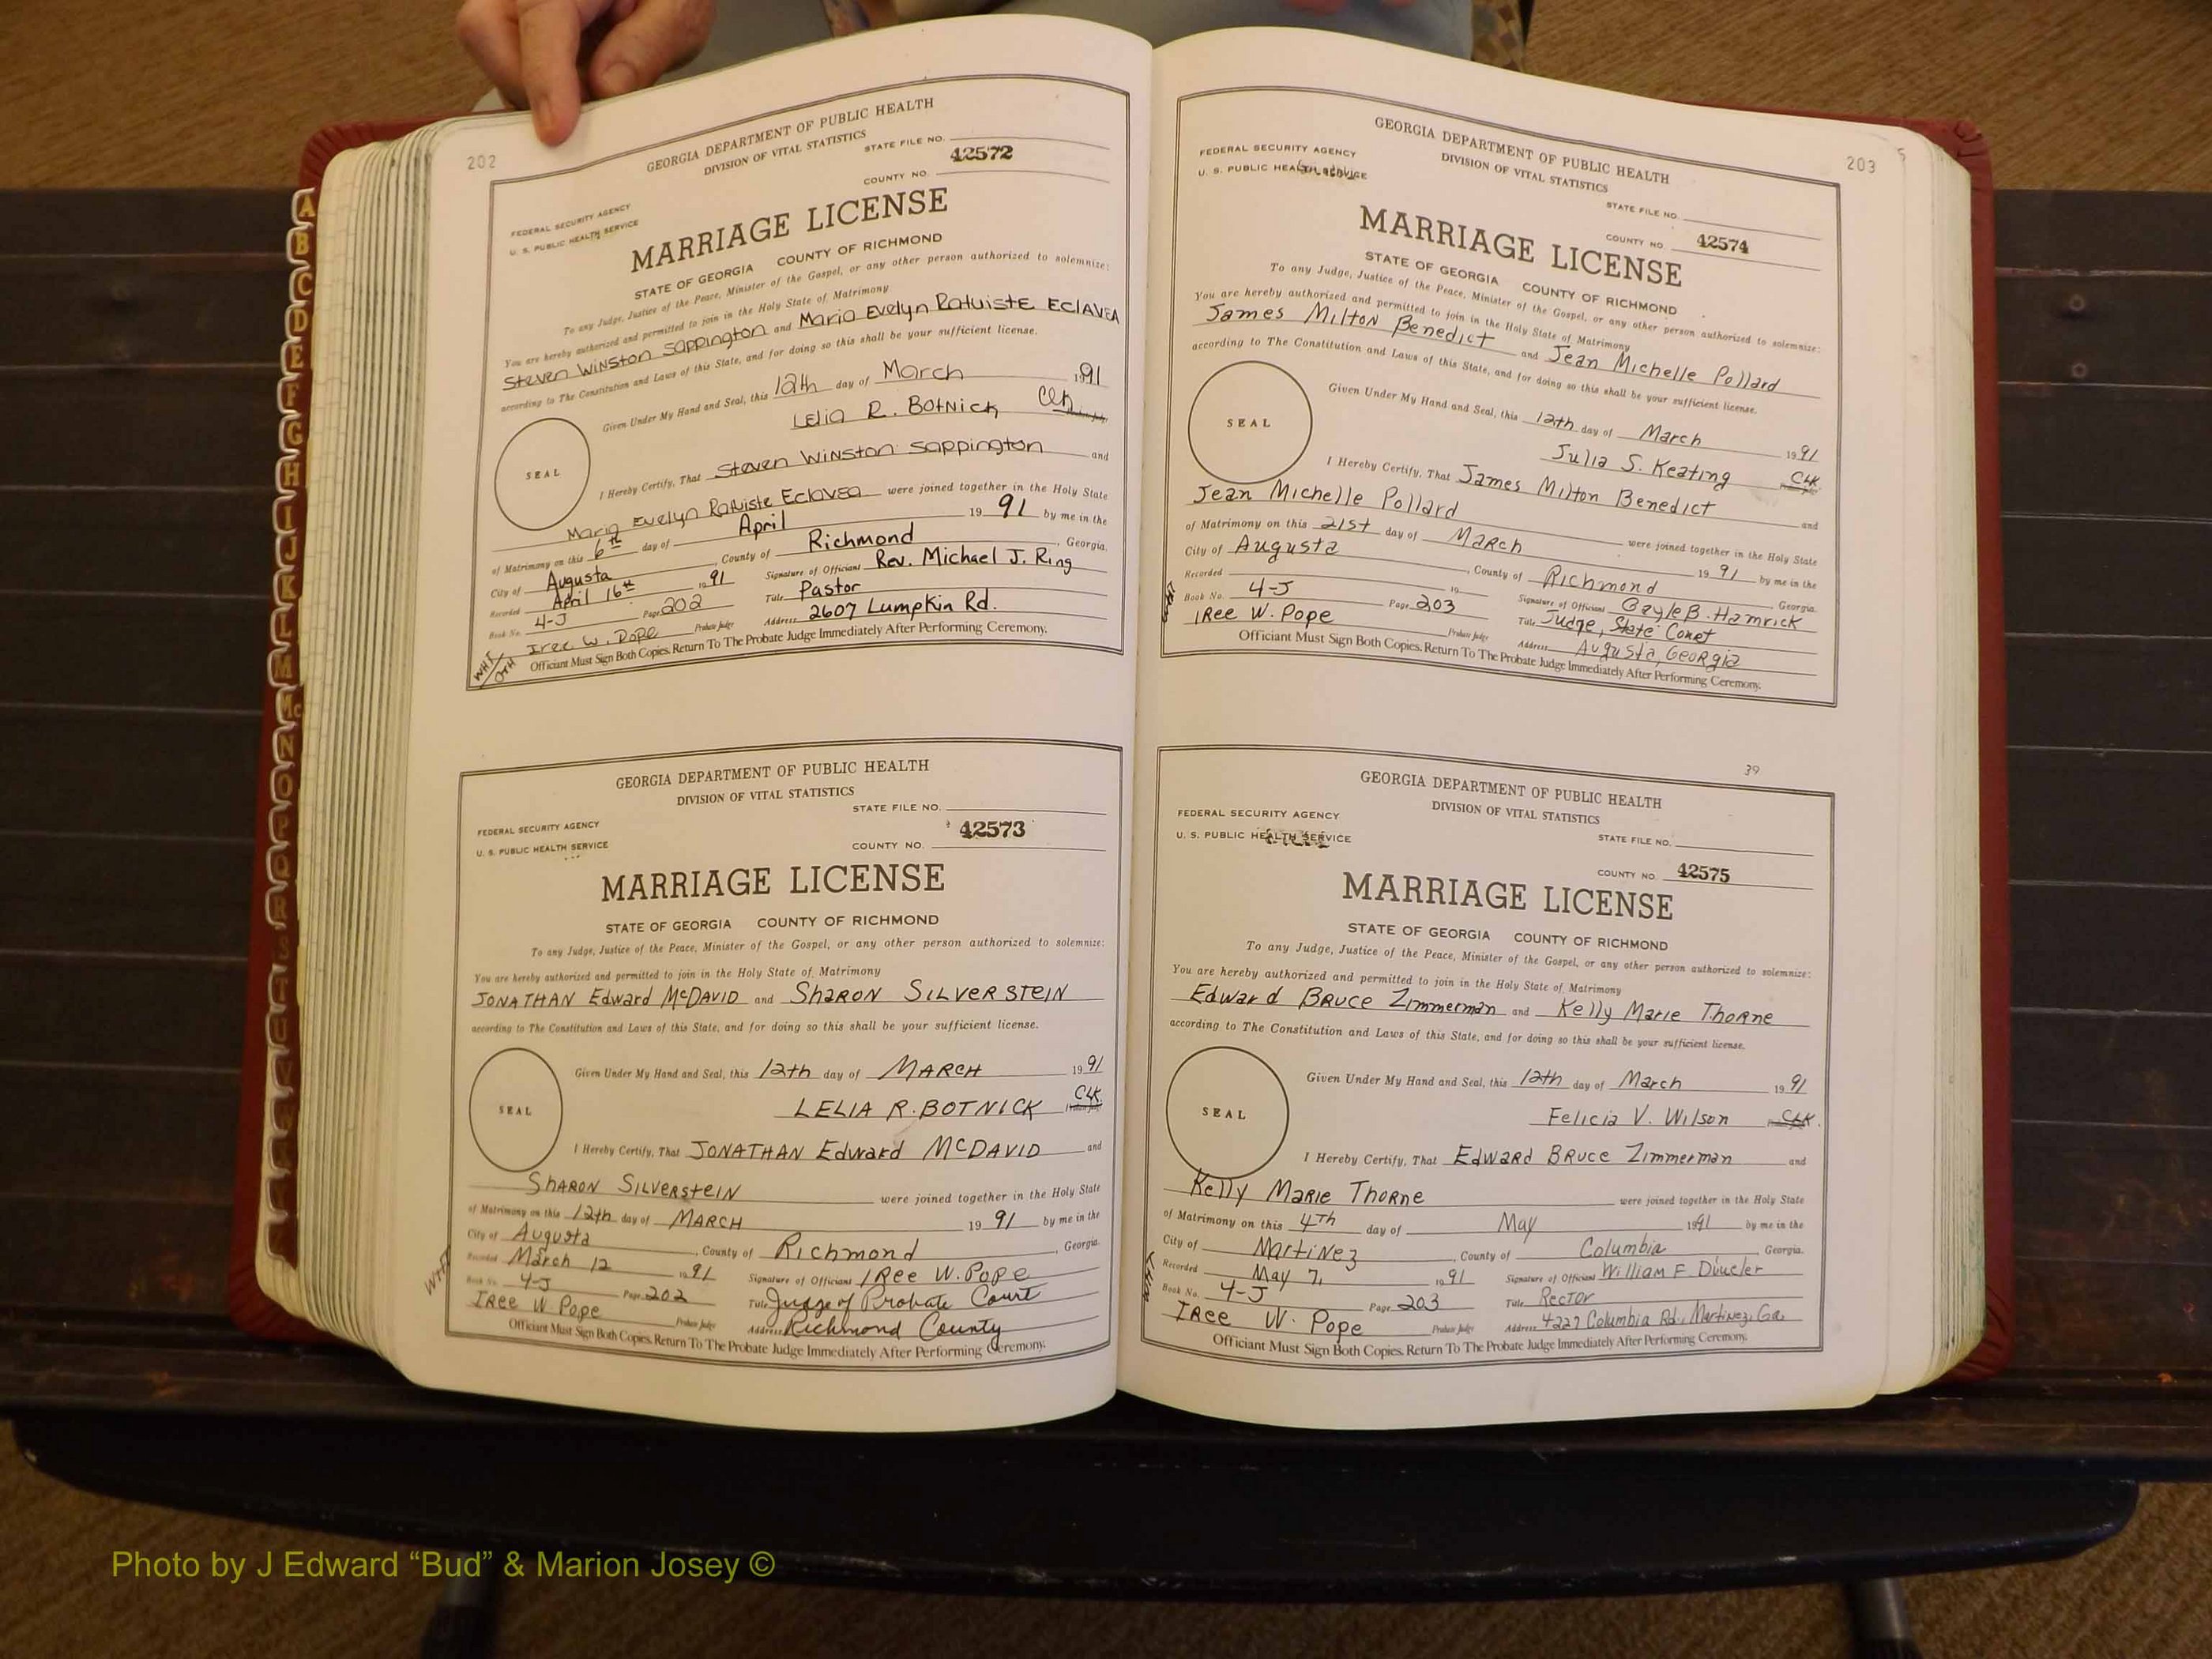 202
GEORGIA DEPARTMENT OF PUBLIC HEALTH
DIVISION OF VITAL STATISTICS
STATE FILE NO.
42572
COUNTY NO.
FEDERAL SECURITY AGENCY
U. S. PUBLIC HEALTH SERVICE
MARRIAGE LICENSE
STATE OF GEORGIA COUNTY OF RICHMOND
To any Judge, Justice of the Peace, Minister of the Gospel, or any other person authorized to solemnize:
You are hereby authorized and permitted to join in the Holy State of Matrimony
Steven Winston Sappington and Maria Evelyn Eclavea
according to The Constitution and Laws of this State, and for doing so this shall be your sufficient license.
Given Under My Hand and Seal, this 12th day of March 1991
Lelia R. Botnick Clk
SEAL
I Hereby Certify, That Steven Winston Sappington and
Maria Evelyn Eclavea were joined together in the Holy State
of Matrimony on this 6th day of April 19 91 by me in the
City of Augusta, County of Richmond, Georgia.
Recorded April 16th 1991 Signature of Officiant Rev. Michael J. Ring
Book No. 4-J Page 202 Title Pastor
Iree W. Pope Probate Judge Address 2607 Lumpkin Rd.
Officiant Must Sign Both Copies. Return To The Probate Judge Immediately After Performing Ceremony.
WHT/OTH
GEORGIA DEPARTMENT OF PUBLIC HEALTH
DIVISION OF VITAL STATISTICS
STATE FILE NO.
42573
COUNTY NO.
FEDERAL SECURITY AGENCY
U. S. PUBLIC HEALTH SERVICE
MARRIAGE LICENSE
STATE OF GEORGIA COUNTY OF RICHMOND
To any Judge, Justice of the Peace, Minister of the Gospel, or any other person authorized to solemnize:
You are hereby authorized and permitted to join in the Holy State of Matrimony
Jonathan Edward McDavid and Sharon Silverstein
according to The Constitution and Laws of this State, and for doing so this shall be your sufficient license.
Given Under My Hand and Seal, this 12th day of March 1991
Lelia R. Botnick Clk.
SEAL
I Hereby Certify, That Jonathan Edward McDavid and
Sharon Silverstein were joined together in the Holy State
of Matrimony on this 12th day of March 19 91 by me in the
City of Augusta, County of Richmond, Georgia.
Recorded March 12 1991 Signature of Officiant Iree W. Pope
Book No. 4-J Page 202 Title Judge of Probate Court
Iree W Pope Probate Judge Address Richmond County
Officiant Must Sign Both Copies. Return To The Probate Judge Immediately After Performing Ceremony.
203
GEORGIA DEPARTMENT OF PUBLIC HEALTH
DIVISION OF VITAL STATISTICS
FEDERAL SECURITY AGENCY
U. S. PUBLIC HEALTH SERVICE
STATE FILE NO.
COUNTY NO. 42574
MARRIAGE LICENSE
STATE OF GEORGIA COUNTY OF RICHMOND
To any Judge, Justice of the Peace, Minister of the Gospel, or any other person authorized to solemnize:
You are hereby authorized and permitted to join in the Holy State of Matrimony
James Milton Benedict and Jean Michelle Pollard
according to The Constitution and Laws of this State, and for doing so this shall be your sufficient license.
Given Under My Hand and Seal, this 12th day of March 1991
Julia S. Keating Clk.
SEAL
I Hereby Certify, That James Milton Benedict and
Jean Michelle Pollard were joined together in the Holy State
of Matrimony on this 21st day of March 19 91 by me in the
City of Augusta, County of Richmond, Georgia.
Recorded 19 Signature of Officiant Gayle B. Hamrick
Book No. 4-J Page 203 Title Judge, State Court
Iree W. Pope Probate Judge Address Augusta, Georgia
Officiant Must Sign Both Copies. Return To The Probate Judge Immediately After Performing Ceremony.
39
GEORGIA DEPARTMENT OF PUBLIC HEALTH
DIVISION OF VITAL STATISTICS
FEDERAL SECURITY AGENCY
U. S. PUBLIC HEALTH SERVICE
STATE FILE NO.
COUNTY NO. 42575
MARRIAGE LICENSE
STATE OF GEORGIA COUNTY OF RICHMOND
To any Judge, Justice of the Peace, Minister of the Gospel, or any other person authorized to solemnize:
You are hereby authorized and permitted to join in the Holy State of Matrimony
Edward Bruce Zimmerman and Kelly Marie Thorne
according to The Constitution and Laws of this State, and for doing so this shall be your sufficient license.
Given Under My Hand and Seal, this 12th day of March 1991
Felicia V. Wilson Clk.
SEAL
I Hereby Certify, That Edward Bruce Zimmerman and
Kelly Marie Thorne were joined together in the Holy State
of Matrimony on this 4th day of May 1991 by me in the
City of Martinez, County of Columbia, Georgia.
Recorded May 7, 1991 Signature of Officiant William F.
Book No. 4-J Page 203 Title Rector
Iree W. Pope Probate Judge Address 4227 Columbia Rd., Martinez, Ga.
Officiant Must Sign Both Copies. Return To The Probate Judge Immediately After Performing Ceremony.
A
B
C
D
E
F
G
H
I
J
K
L
M
Mc
N
O
P
Q
R
S
T
U
Photo by J Edward “Bud” & Marion Josey ©